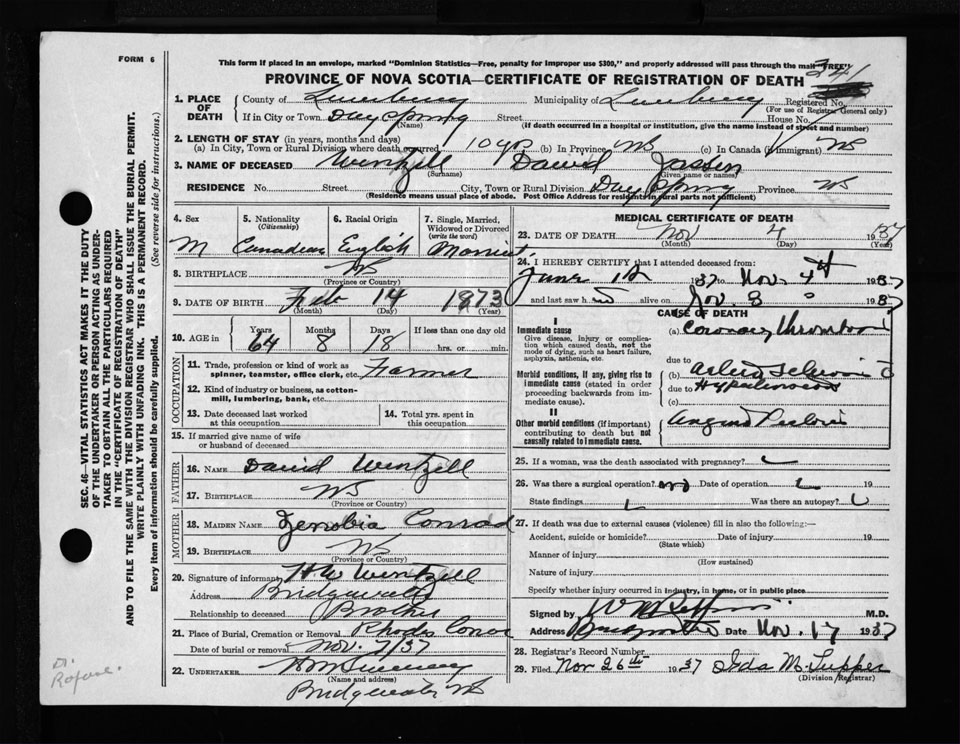 FORM 6
This form if placed in an envelope, marked "Dominion Statistics—Free, penalty for improper use $300," and properly addressed will pass through the mail "FREE"
PROVINCE OF NOVA SCOTIA—CERTIFICATE OF REGISTRATION OF DEATH
1. PLACE OF DEATH
County of Lunenburg Municipality of Lunenburg Registered No.
(For use of Registrar General only)
If in City or Town Dayspring Street House No.
(Name) (If death occurred in a hospital or institution, give the name instead of street and number)
2. LENGTH OF STAY (in years, months and days)
(a) In City, Town or Rural Division where death occurred 10 yrs (b) In Province NS (c) In Canada (if immigrant) NS
3. NAME OF DECEASED Wentzell David
(Surname) (Given name or names)
RESIDENCE No. Street City, Town or Rural Division Dayspring Province NS
(Residence means usual place of abode. Post Office Address for residents in rural parts not sufficient)
4. Sex M
5. Nationality (Citizenship) Canadian
6. Racial Origin English
7. Single, Married, Widowed or Divorced (write the word) Married
8. BIRTHPLACE NS
(Province or Country)
9. DATE OF BIRTH Feb 14 1873
(Month) (Day) (Year)
10. AGE in Years Months Days If less than one day old
64 8 18 hrs. or min.
OCCUPATION
11. Trade, profession or kind of work as spinner, teamster, office clerk, etc. Farmer
12. Kind of industry or business, as cotton-mill, lumbering, bank, etc.
13. Date deceased last worked at this occupation
14. Total yrs. spent in this occupation
15. If married give name of wife or husband of deceased
FATHER
16. NAME David Wentzell
17. BIRTHPLACE NS
(Province or Country)
MOTHER
18. MAIDEN NAME Zenobia Conrad
19. BIRTHPLACE NS
(Province or Country)
20. Signature of informant H W Wentzell
Address Bridgewater
Relationship to deceased Brother
21. Place of Burial, Cremation or Removal Rhodes Corner
Date of burial or removal Nov. 7/37
22. UNDERTAKER
(Name and address)
Bridgewater NS
MEDICAL CERTIFICATE OF DEATH
23. DATE OF DEATH Nov 4 1937
(Month) (Day) (Year)
24. I HEREBY CERTIFY that I attended deceased from:
June 12 1937 to Nov. 4th 1937
and last saw h alive on Nov. 3 1937
CAUSE OF DEATH
I
Immediate cause (a) Coronary Thrombosis
Give disease, injury or complication which caused death, not the mode of dying, such as heart failure, asphyxia, asthenia, etc.
due to
Morbid conditions, if any, giving rise to immediate cause (stated in order proceeding backwards from immediate cause).
(b)
due to
(c)
II
Other morbid conditions (if important) contributing to death but not causally related to immediate cause.
Angina Pectoris
25. If a woman, was the death associated with pregnancy?
26. Was there a surgical operation? Date of operation 19
State findings Was there an autopsy?
27. If death was due to external causes (violence) fill in also the following:—
Accident, suicide or homicide? Date of injury 19
(State which)
Manner of injury
(How sustained)
Nature of injury
Specify whether injury occurred in industry, in home, or in public place
Signed by M.D.
Address Bridgewater Date Nov. 17 1937
28. Registrar's Record Number
29. Filed Nov 26th 1937 Ida M. Tupper
(Division Registrar)
SEC. 46—VITAL STATISTICS ACT MAKES IT THE DUTY
OF THE UNDERTAKER OR PERSON ACTING AS UNDER-
TAKER TO OBTAIN ALL THE PARTICULARS REQUIRED
IN THE "CERTIFICATE OF REGISTRATION OF DEATH"
AND TO FILE THE SAME WITH THE DIVISION REGISTRAR WHO SHALL ISSUE THE BURIAL PERMIT.
WRITE PLAINLY WITH UNFADING INK. THIS IS A PERMANENT RECORD.
Every item of information should be carefully supplied. (See reverse side for instructions.)